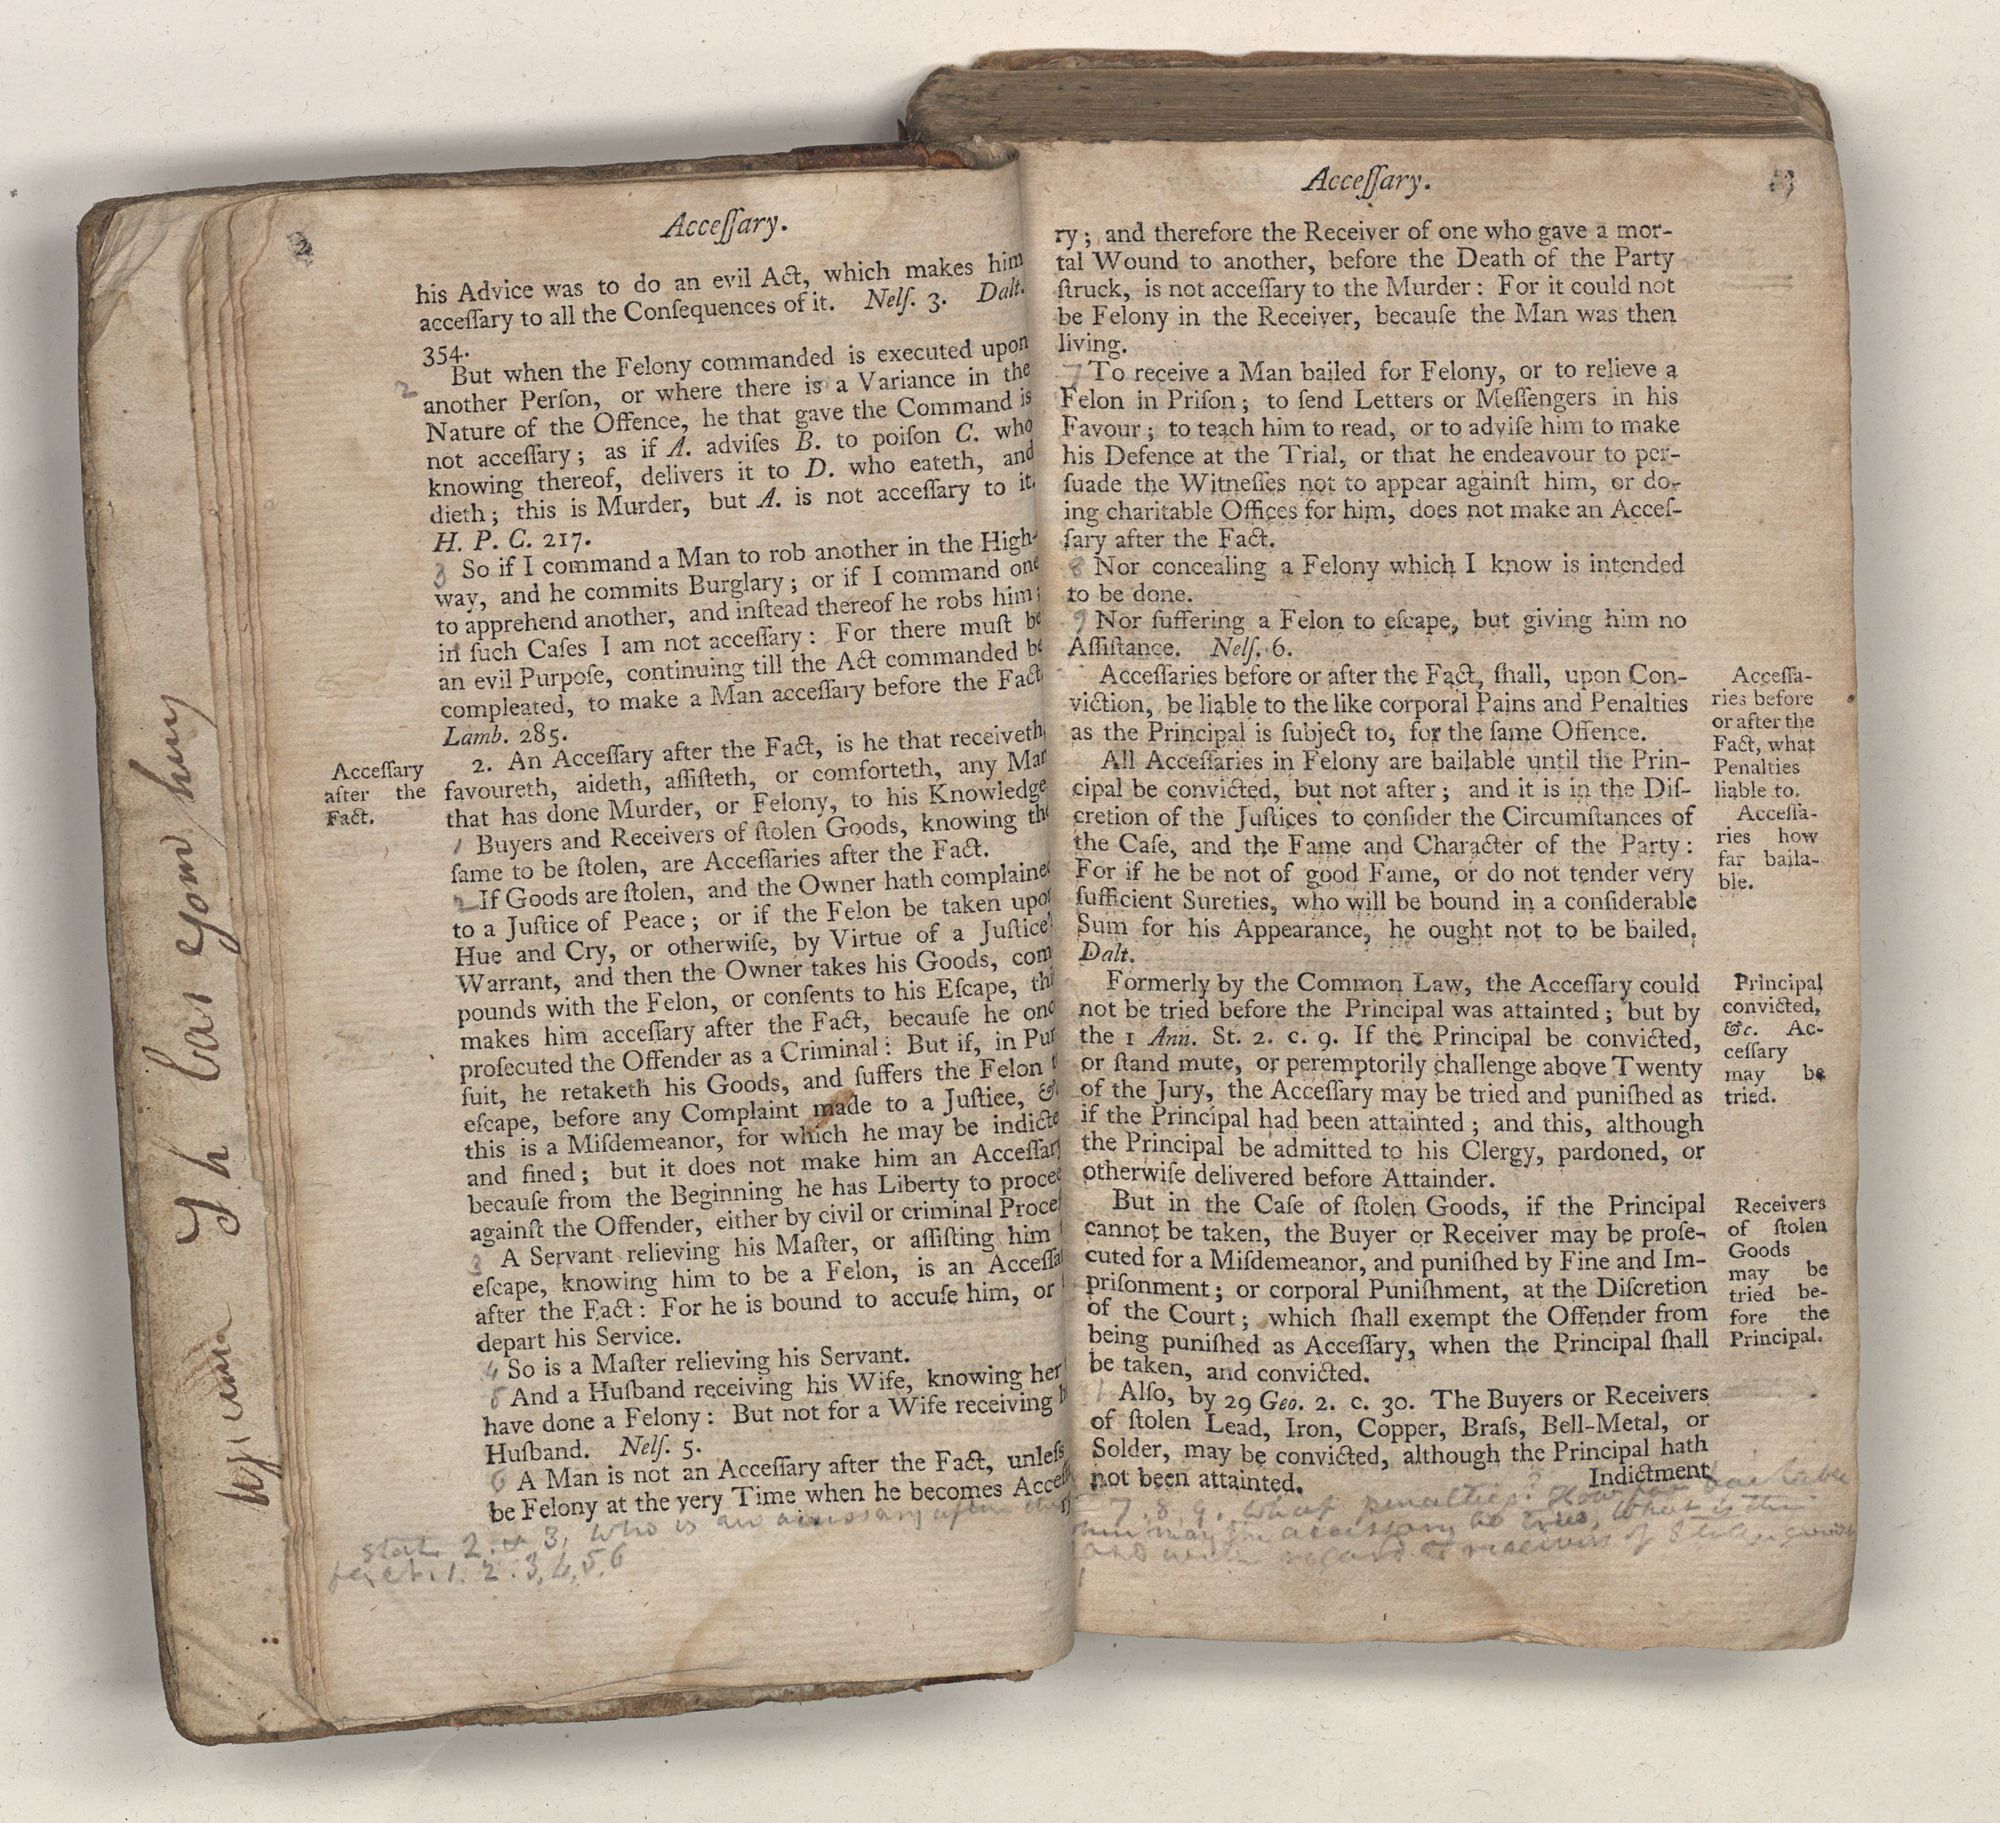 2
Acceſſary.
his Advice was to do an evil Act, which makes him
acceſſary to all the Conſequences of it. Nelſ. 3. Dalt.
354.
2 But when the Felony commanded is executed upon
another Perſon, or where there is a Variance in the
Nature of the Offence, he that gave the Command is
not acceſſary; as if A. adviſes B. to poiſon C. who
knowing thereof, delivers it to D. who eateth, and
dieth; this is Murder, but A. is not acceſſary to it.
H. P. C. 217.
3 So if I command a Man to rob another in the High-
way, and he commits Burglary; or if I command one
to apprehend another, and inſtead thereof he robs him;
in ſuch Caſes I am not acceſſary: For there muſt be
an evil Purpoſe, continuing till the Act commanded be
compleated, to make a Man acceſſary before the Fact.
Lamb. 285.
Acceſſary
after the
Fact.
2. An Acceſſary after the Fact, is he that receiveth,
favoureth, aideth, aſſiſteth, or comforteth, any Man
that has done Murder, or Felony, to his Knowledge
1 Buyers and Receivers of ſtolen Goods, knowing the
ſame to be ſtolen, are Acceſſaries after the Fact.
2 If Goods are ſtolen, and the Owner hath complained
to a Juſtice of Peace; or if the Felon be taken upon
Hue and Cry, or otherwiſe, by Virtue of a Juſtice's
Warrant, and then the Owner takes his Goods, com
pounds with the Felon, or conſents to his Eſcape, thi
makes him acceſſary after the Fact, becauſe he onc
proſecuted the Offender as a Criminal: But if, in Pur
ſuit, he retaketh his Goods, and ſuffers the Felon t
eſcape, before any Complaint made to a Juſtice, &
this is a Miſdemeanor, for which he may be indicte
and fined; but it does not make him an Acceſſary
becauſe from the Beginning he has Liberty to procee
againſt the Offender, either by civil or criminal Proceſ
3 A Servant relieving his Maſter, or aſſiſting him
eſcape, knowing him to be a Felon, is an Acceſſa
after the Fact: For he is bound to accuſe him, or
depart his Service.
4 So is a Maſter relieving his Servant.
5 And a Huſband receiving his Wife, knowing her
have done a Felony: But not for a Wife receiving h
Huſband. Nelſ. 5.
6 A Man is not an Acceſſary after the Fact, unleſs
be Felony at the very Time when he becomes Acceſſ
2 & 3, Who is an accessary after the
fact. 1. 2. 3, 4, 5, 6
Acceſſary.
ry; and therefore the Receiver of one who gave a mor-
tal Wound to another, before the Death of the Party
ſtruck, is not acceſſary to the Murder: For it could not
be Felony in the Receiver, becauſe the Man was then
living.
7 To receive a Man bailed for Felony, or to relieve a
Felon in Priſon; to ſend Letters or Meſſengers in his
Favour; to teach him to read, or to adviſe him to make
his Defence at the Trial, or that he endeavour to per-
ſuade the Witneſſes not to appear againſt him, or do-
ing charitable Offices for him, does not make an Acceſ-
ſary after the Fact.
8 Nor concealing a Felony which I know is intended
to be done.
9 Nor ſuffering a Felon to eſcape, but giving him no
Aſſiſtance. Nelſ. 6.
Acceſſaries before or after the Fact, ſhall, upon Con-
viction, be liable to the like corporal Pains and Penalties
as the Principal is ſubject to, for the ſame Offence.
Acceſſa-
ries before
or after the
Fact, what
Penalties
liable to.
All Acceſſaries in Felony are bailable until the Prin-
cipal be convicted, but not after; and it is in the Diſ-
cretion of the Juſtices to conſider the Circumſtances of
the Caſe, and the Fame and Character of the Party:
For if he be not of good Fame, or do not tender very
ſufficient Sureties, who will be bound in a conſiderable
Sum for his Appearance, he ought not to be bailed.
Dalt.
Acceſſa-
ries how
far baila-
ble.
Formerly by the Common Law, the Acceſſary could
not be tried before the Principal was attainted; but by
the 1 Ann. St. 2. c. 9. If the Principal be convicted,
or ſtand mute, or peremptorily challenge above Twenty
of the Jury, the Acceſſary may be tried and puniſhed as
if the Principal had been attainted; and this, although
the Principal be admitted to his Clergy, pardoned, or
otherwiſe delivered before Attainder.
Principal
convicted,
&c. Ac-
ceſſary
may be
tried.
But in the Caſe of ſtolen Goods, if the Principal
cannot be taken, the Buyer or Receiver may be proſe-
cuted for a Miſdemeanor, and puniſhed by Fine and Im-
priſonment; or corporal Puniſhment, at the Diſcretion
of the Court; which ſhall exempt the Offender from
being puniſhed as Acceſſary, when the Principal ſhall
be taken, and convicted.
Receivers
of ſtolen
Goods
may be
tried be-
fore the
Principal.
1 Alſo, by 29 Geo. 2. c. 30. The Buyers or Receivers
of ſtolen Lead, Iron, Copper, Braſs, Bell-Metal, or
Solder, may be convicted, although the Principal hath
not been attainted.
Indictment
7, 8, 9. What penalties? How far bailable
may the accessary be tried, What is the
with regard to receivers of Stolen goods
1